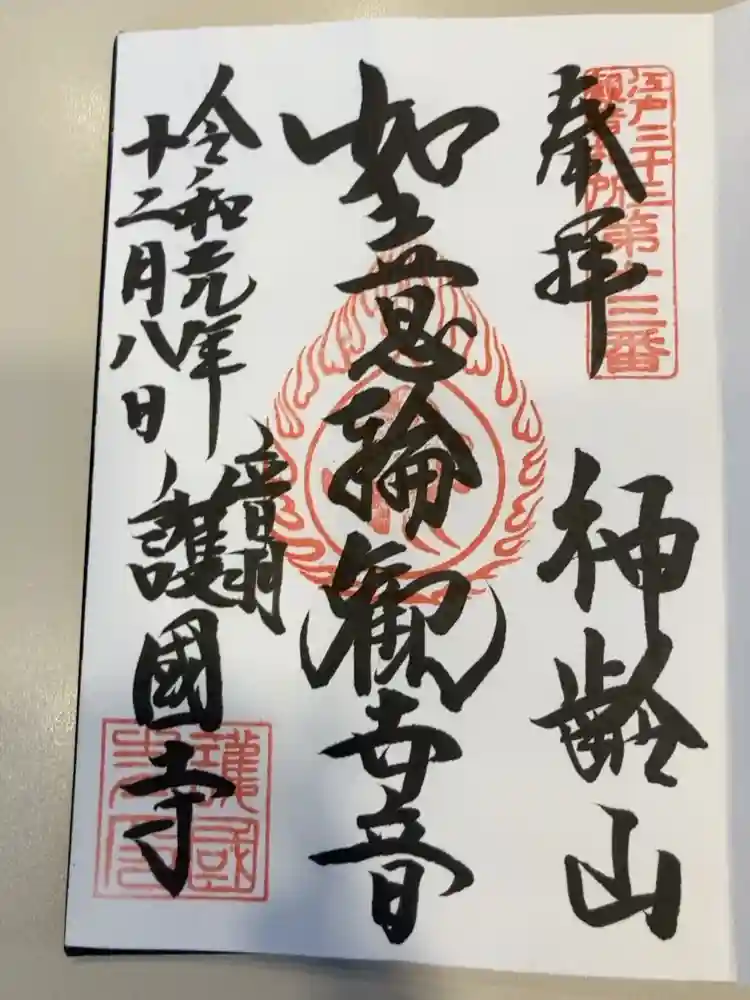 江戸三十三
観音札所
第十三番
奉拝
神齢山
如意輪観世音
令和元年
十二月八日
音羽
護國寺